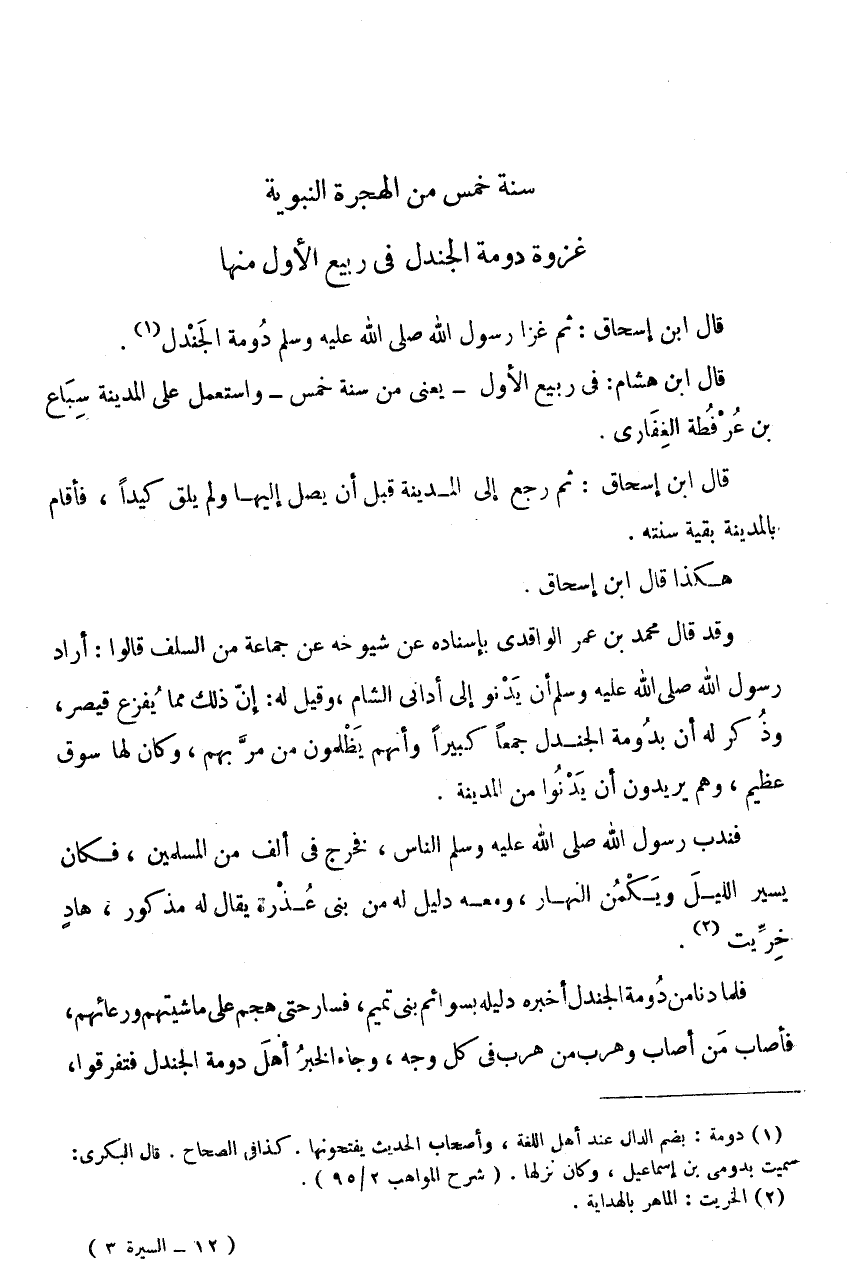 سنة خمس من الهجرة النبوية
غزوة دومة الجندل فى ربيع الأول منها
قال ابن إسحاق : ثم غزا رسول الله صلى الله عليه وسلم دُومة الجَنْدل (١) .
قال ابن هشام: فى ربيع الأول – يعنى من سنة خمس – واستعمل على المدينة سِبَاع
بن عُرْفُطة الغِفَارى .
قال ابن إسحاق : ثم رجع إلى المـدينة قبل أن يصل إليهـا ولم يلق كيداً ، فأقام
بالمدينة بقية سنته .
هـكذا قال ابن إسحاق .
وقد قال محمد بن عمر الواقدى بإسناده عن شيوخه عن جماعة من السلف قالوا : أراد
رسول الله صلى الله عليه وسلم أن يَدْنو إلى أدانى الشام ،وقيل له: إنّ ذلك مما يُفزع قيصر،
وذُكر له أن بدُومة الجنـدل جمعاً كبيراً وأنهم يَظْلمون من مرَّ بهم ، وكان لها سوق
عظيم ، وهم يريدون أن يَدْنُوا من المدينة .
فندب رسول الله صلى الله عليه وسلم الناس ، فخرج فى ألف من المسلمين ، فـكان
يسير الليـلَ ويَـكْمُن النهـار ، ومعـه دليل له من بنى عُـذْرة يقال له مذكور ، هادٍ
خِرِّيت (٢) .
فلما دنا من دُومة الجندل أخبره دليله بسوائم بنى تميم، فسار حتى هجم على ماشيتهم ورعائهم،
فأصاب مَن أصاب وهرب من هرب فى كل وجه ، وجاء الخبرُ أهلَ دومة الجندل فتفرقوا،
(١) دومة : بضم الدال عند أهل اللغة ، وأصحاب الحديث يفتحونها . كذا فى الصحاح . قال البكرى:
سميت بدومى بن إسماعيل ، وكان نزلها . ( شرح المواهب ٩٥/٢ ) .
(٢) الخريت : الماهر بالهداية .
( ١٢ – السيرة ٣ )